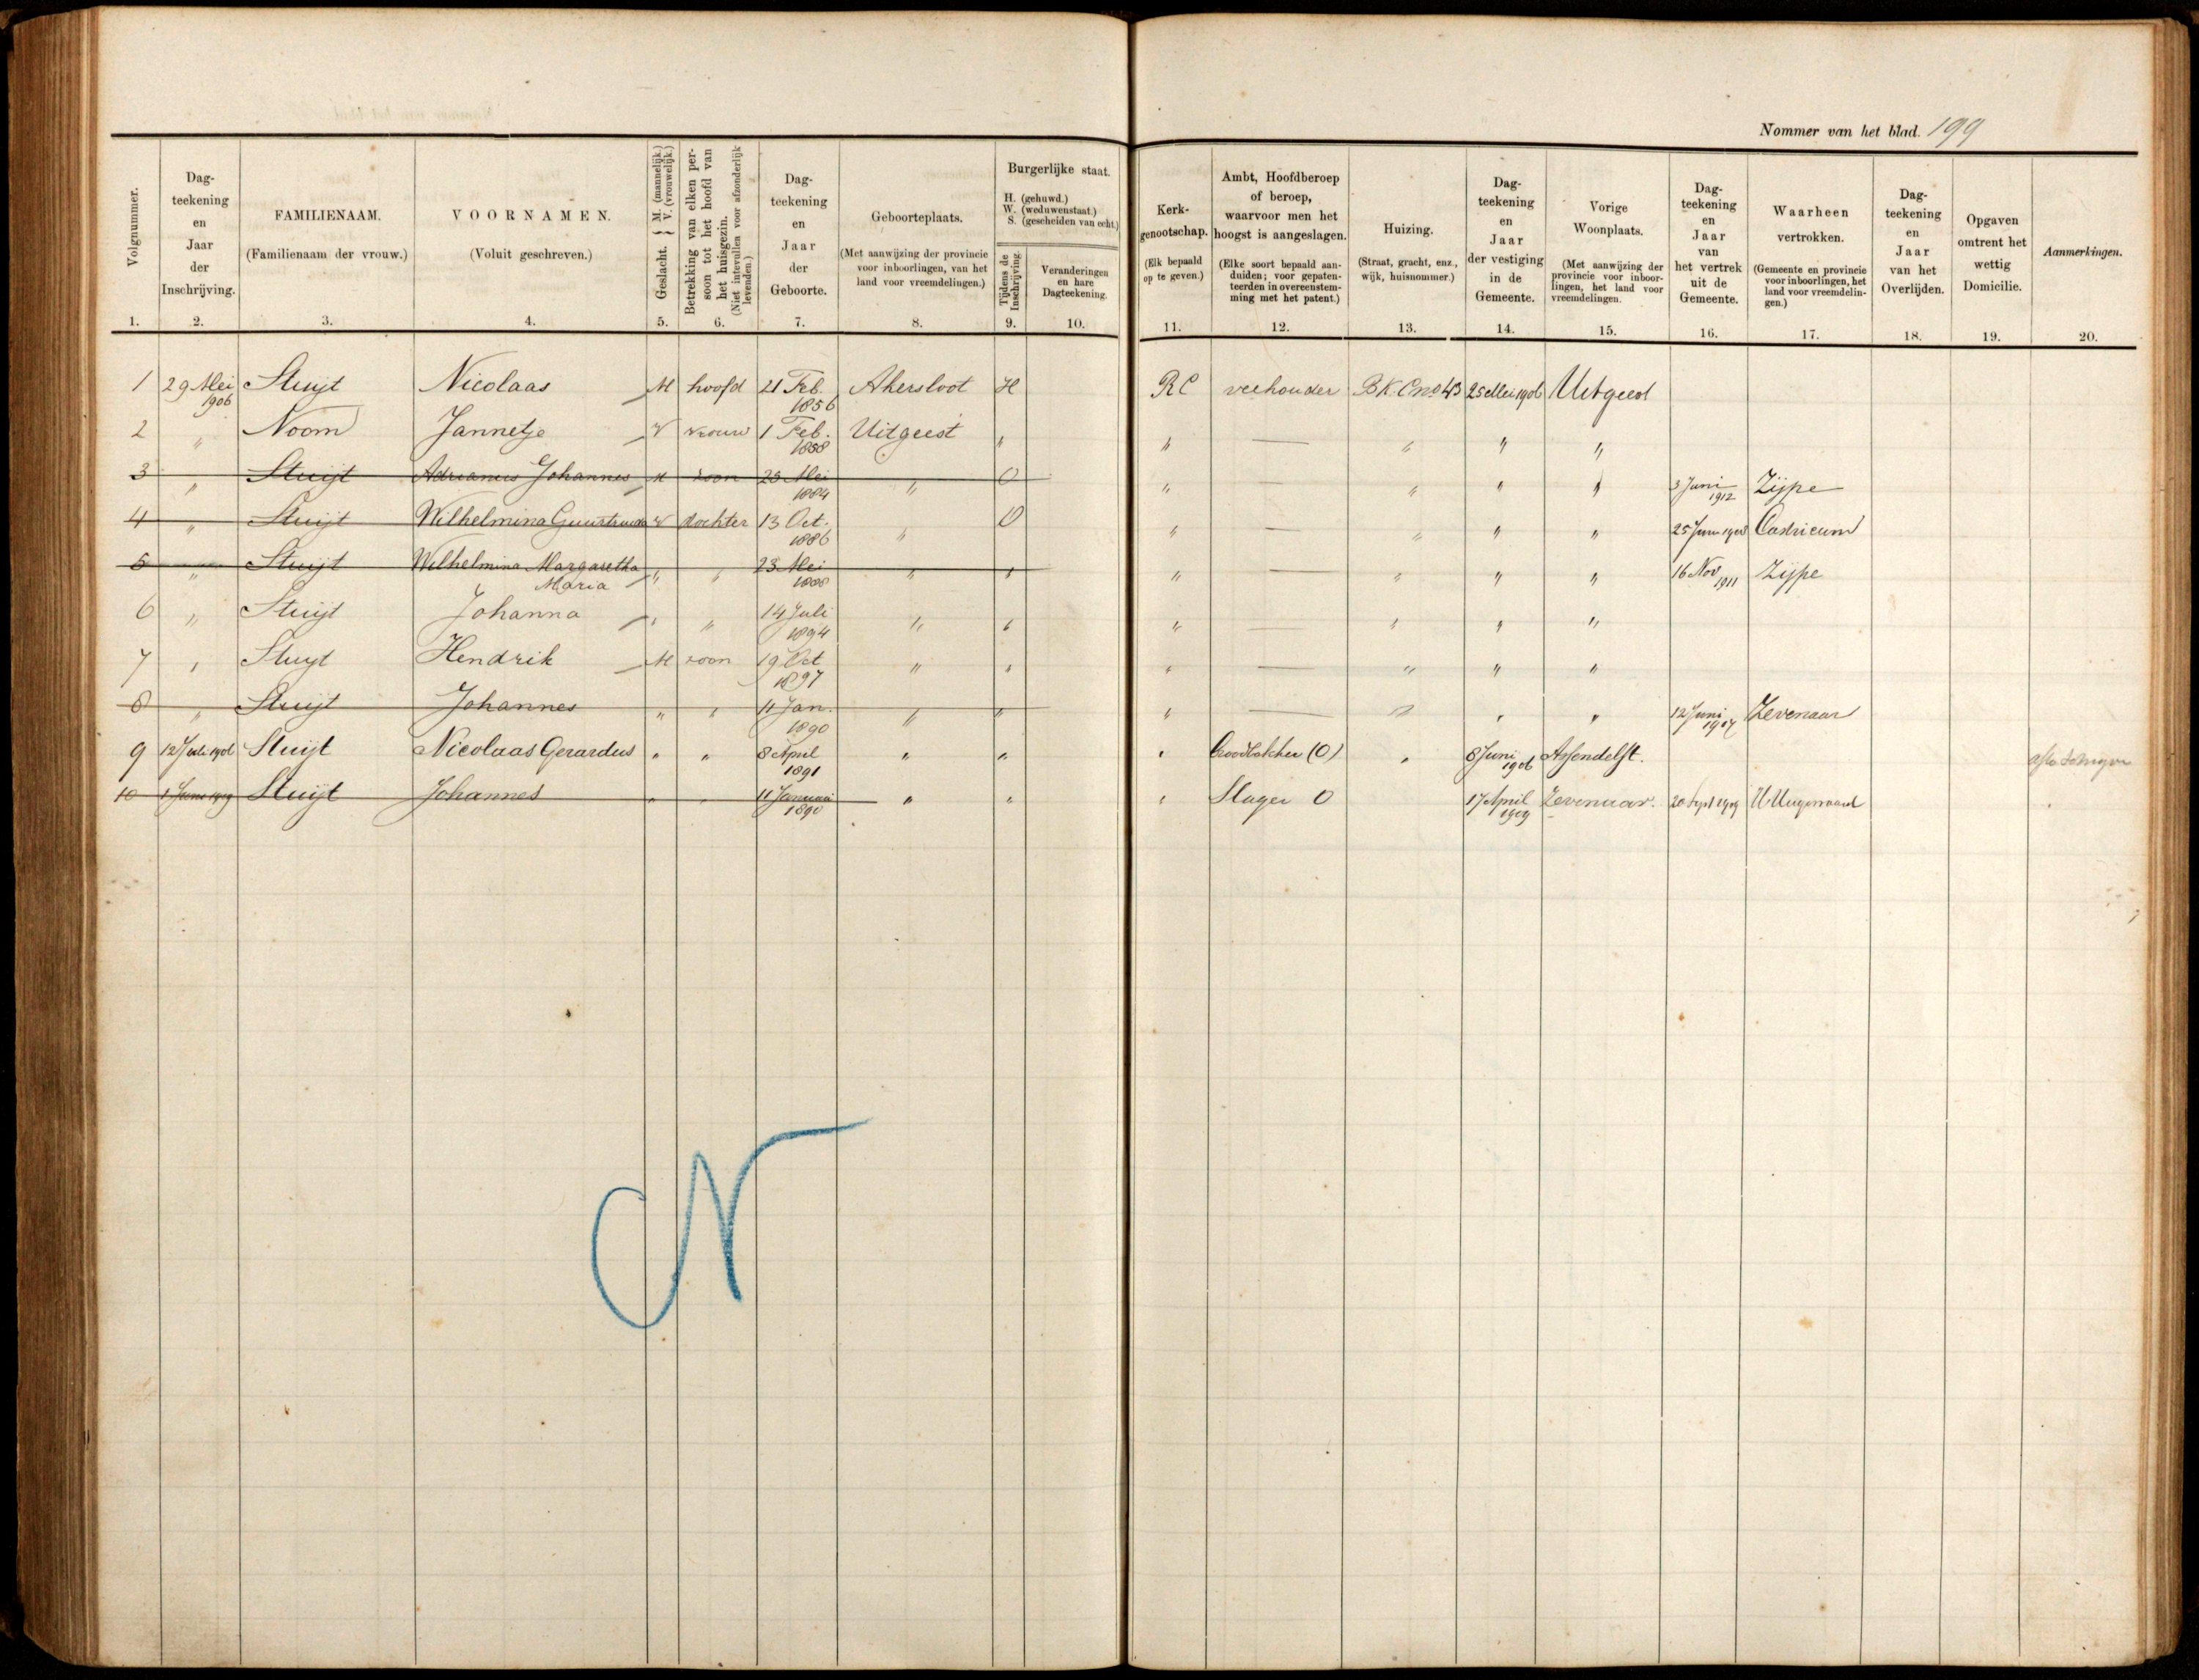 Nommer van het blad. 199
Volgnummer. Dagteekening en Jaar der Inschrijving. FAMILIENAAM. (Familienaam der vrouw.) VOORNAMEN. (Voluit geschreven.) Geslacht. { M. (mannelijk.) V. (vrouwelijk.) Betrekking van elken persoon tot het hoofd van het huisgezin. (Niet intevullen voor afzonderlijk levenden.) Dagteekening en Jaar der Geboorte. Geboorteplaats. (Met aanwijzing der provincie voor inboorlingen, van het land voor vreemdelingen.) Burgerlijke staat. H. (gehuwd.) W. (weduwenstaat.) S. (gescheiden van echt.) Tijdens de Inschrijving. Veranderingen en hare Dagteekening. Kerkgenootschap. (Elk bepaald op te geven.) Ambt, Hoofdberoep of beroep, waarvoor men het hoogst is aangeslagen. (Elke soort bepaald aanduiden; voor gepatenteerden in overeenstemming met het patent.) Huizing. (Straat, gracht, enz., wijk, huisnommer.) Dagteekening en Jaar der vestiging in de Gemeente. Vorige Woonplaats. (Met aanwijzing der provincie voor inboorlingen, het land voor vreemdelingen. Dagteekening en Jaar van het vertrek uit de Gemeente. Waarheen vertrokken. (Gemeente en provincie voor inboorlingen, het land voor vreemdelingen.) Dagteekening en Jaar van het Overlijden. Opgaven omtrent het wettig Domicilie. Aanmerkingen.
1. 2. 3. 4. 5. 6. 7. 8. 9. 10. 11. 12. 13. 14. 15. 16. 17. 18. 19. 20.
1 29 Mei 1906 Stuijt Nicolaas M hoofd 21 Feb. 1856 Akersloot H RC veehouder B.K. C no 43 25 Mei 1906 Uitgeest
2 " Noom Jannetje V vrouw 1 Feb. 1858 Uitgeest " " — " " "
3 " Stuijt Adrianus Johannes M zoon 25 Mei 1884 " O " — " " " 3 Juni 1912 Zijpe
4 " Stuijt Wilhelmina V dochter 13 Oct. 1886 " O " — " " " 25 Castricum
5 " Stuijt Wilhelmina Margaretha Maria " " 23 Mei 1888 " " " — " " " 16 Nov 1911 Zijpe
6 " Stuijt Johanna " " 14 Juli 1894 " " " — " " "
7 " Stuijt Hendrik M zoon 19 Oct 1897 " " " — " " "
8 " Stuijt Johannes " " 11 Jan. 1890 " " " — " " " 12 Juni 1907 Zevenaar
9 12 Juli 1906 Stuijt Nicolaas Gerardus " " 8 April 1891 " " " (O) " 8 Juni 1906 Assendelft.
10 1 Juni 1909 Stuijt Johannes " " 11 Januari 1890 " " " Slager O 17 April 1909 Zevenaar. 20 Sept 1909
N